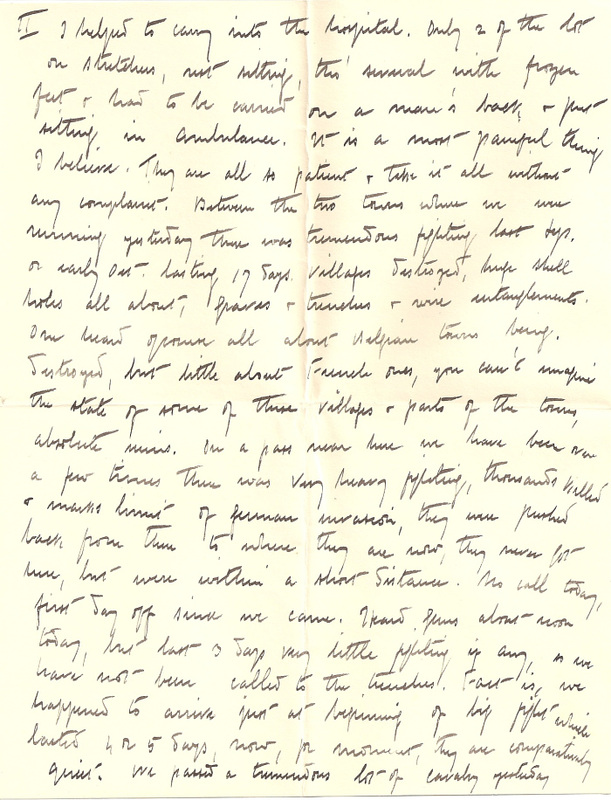 II I helped to carry into the hospital. Only 2 of the lot
on stretchers, rest sitting, tho' several with frozen
feet & had to be carried on a man's back, & put
sitting in ambulance. It is a most painful thing
I believe. They are all so patient & take it all without
any complaint. Between the two towns where we were
running yesterday there was tremendous fighting last Sep.
or early Oct. lasting 17 days. Villages destroyed, huge shell
holes all about, graves & trenches & wire entanglements.
One heard of course all about Belgian towns being
destroyed, but little about French ones, you can't imagine
the state of some of these villages & parts of the towns,
absolute ruins. On a pass near here we have been over
a few times there was very heavy fighting, thousands killed
& marks limit of German invasion, they were pushed
back from there to where they are now, they never got
here, but were within a short distance. No call today,
first day off since we came. Heard guns about noon
today, but last 3 days very little fighting if any, as we
have not been called to the trenches. Fact is, we
happened to arrive just at beginning of big fight which
lasted 4 or 5 days, now, for moment, they are comparatively
quiet. We passed a tremendous lot of cavalry yesterday